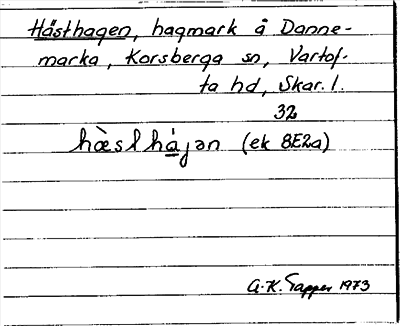 Hästhagen, hagmark å Danne-
marka, Korsberga sn, Vartof-
ta hd, Skar. l.
32
hæ̀slhájən (ek 8E2a)
A.K. Tapper 1973